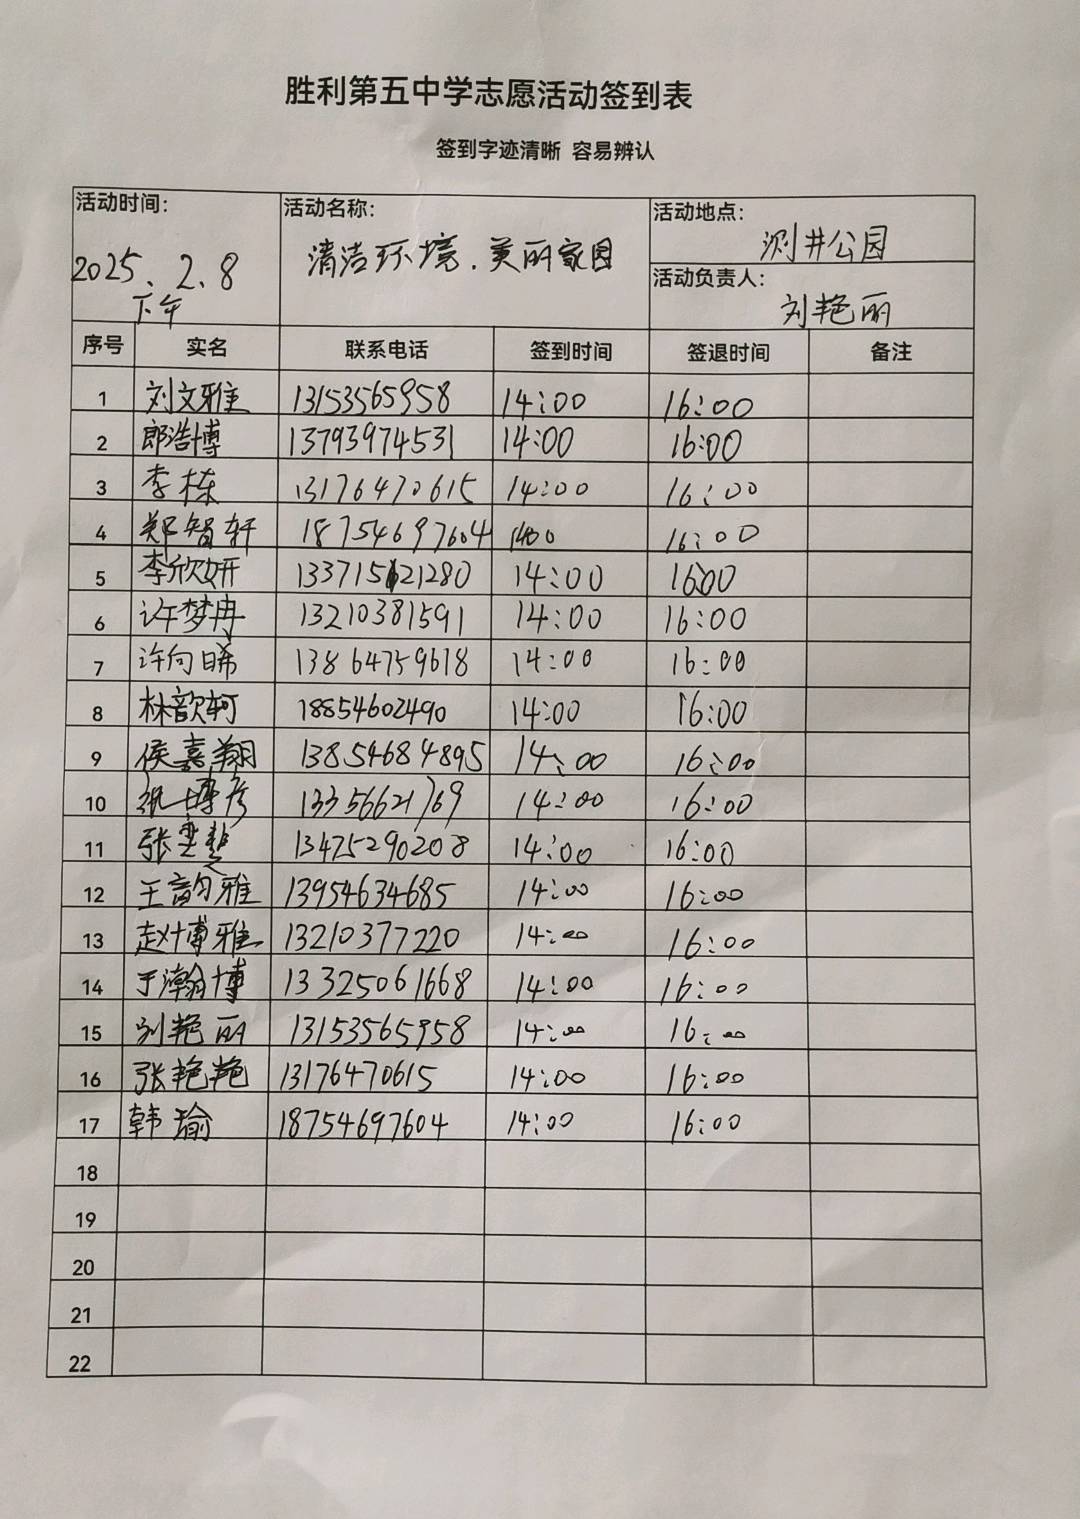 胜利第五中学志愿活动签到表
签到字迹清晰 容易辨认
活动时间: 2025.2.8 下午
活动名称: 清洁环境.美丽家园
活动地点: 测井公园
活动负责人: 刘艳丽
序号 实名 联系电话 签到时间 签退时间 备注
1 刘文雅 13153565958 14:00 16:00
2 郎浩博 13793974531 14:00 16:00
3 李栋 13176470615 14:00 16:00
4 郑智轩 18754697604 1400 16:00
5 李欣妍 13371521280 14:00 16:00
6 许梦冉 13210381591 14:00 16:00
7 许向晞 13864759618 14:00 16:00
8 林歆轲 18854602490 14:00 16:00
9 侯嘉翔 13854684895 14:00 16:00
10 博彦 13356621769 14:00 16:00
11 张奕 13475290208 14:00 16:00
12 王韵雅 13954634685 14:00 16:00
13 赵博雅 13210377220 14:00 16:00
14 于瀚博 13325061668 14:00 16:00
15 刘艳丽 13153565958 14:00 16:00
16 张艳艳 13176470615 14:00 16:00
17 韩瑜 18754697604 14:00 16:00
18
19
20
21
22